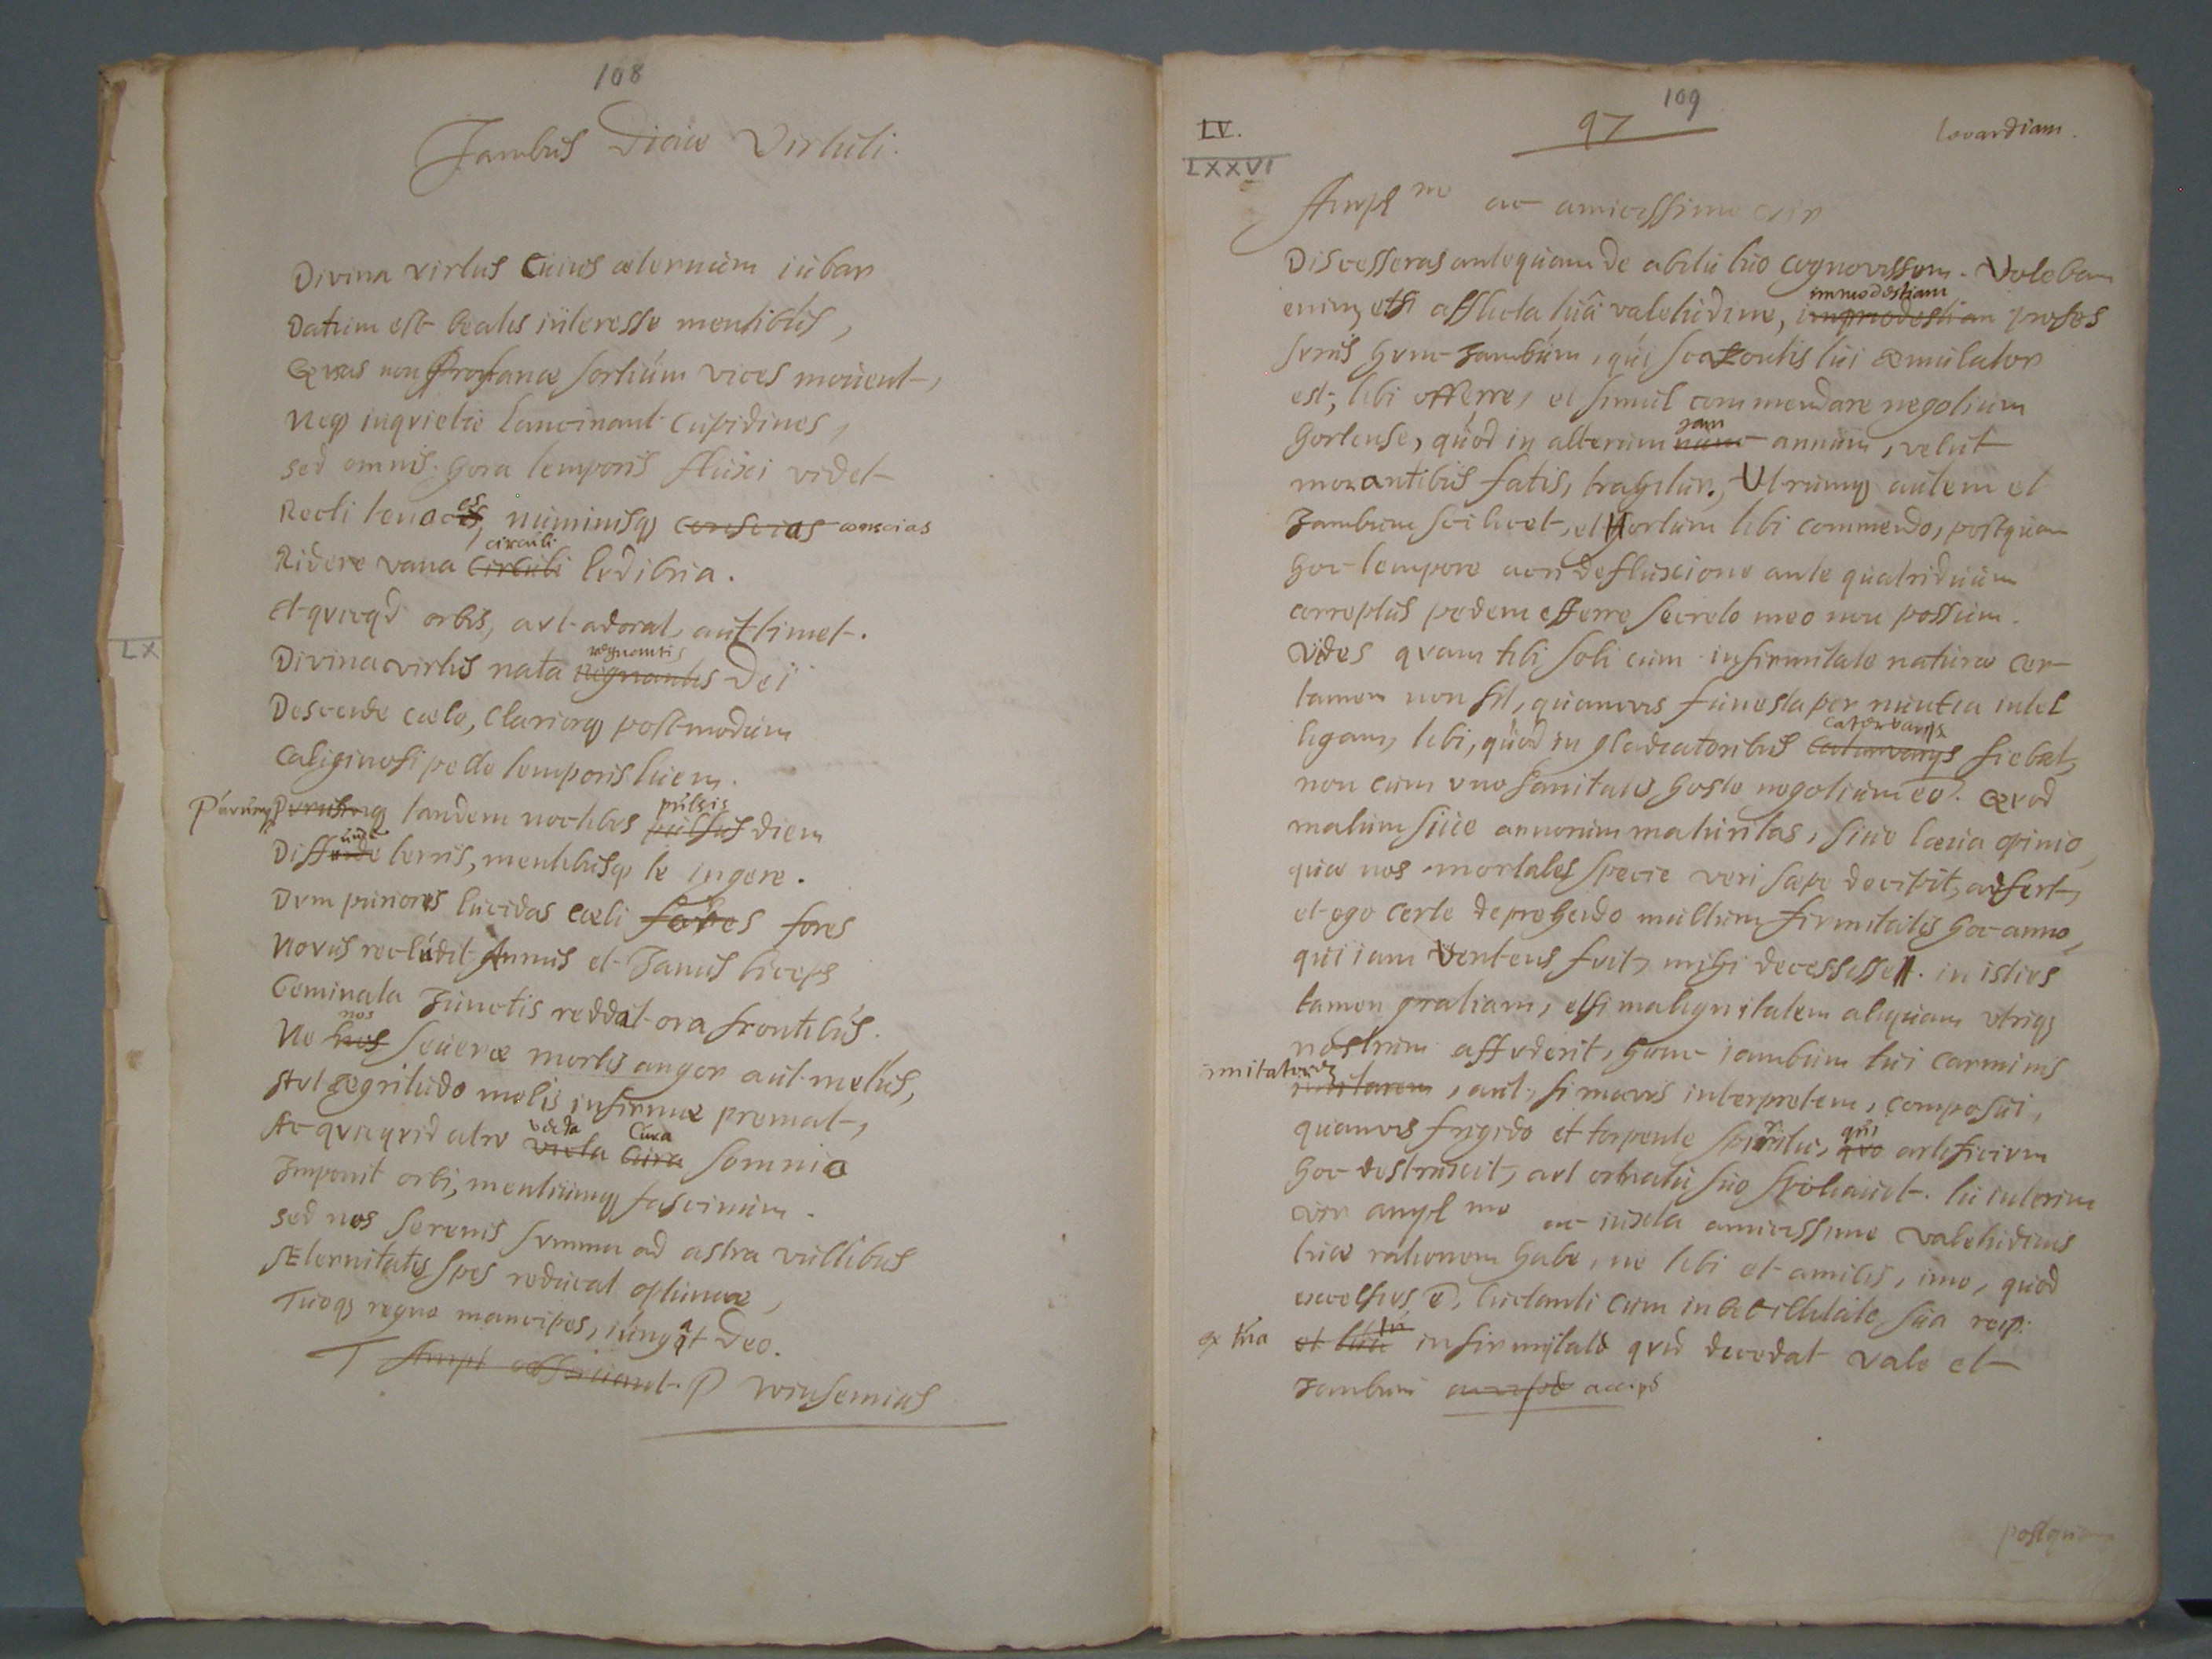 108
Iambus Diciae Virtuti.
Divina virtus cuius aeternum iubar
Datum est beatis interesse mentibus,
Quas non profanae sortium vices movent,
Neq inquietae lancinant Cupidines,
sed omnis hora temporis fluxi videt
Recti tenaces, numinisq conscias conscias
circuli
Ridere vana circuli ludibria.
Et quicqd orbis, aut adorat, aut timet.
regnantis
Divina virtus nata Regnantis Dei
Descende caelo, Clariorq postmodum
caliginosi pelle temporis luem.
pulsis
Parumq Parumq tandem noctibus pulsis diem
unde
Diffunde terris, mentibusq te ingere.
Dum puriores lucidas caeli fores fores
Novus recludit Annus et Janus biceps
Geminata Junctis reddat ora frontibus.
nos
Ne hos severae mortis angor aut metus,
Aut aegritudo molis infirmae premat,
victa Cura
Ac quicquid atro victa Cura somnio
Imponit orbi, mentiumq fascinum.
sed nos serenis summa ad astra vultibus
AEternitatis spes reducat optimae,
Tuoq regno mancipes, iungat Deo.
T Ampl P winsemius
LX
LV.
LXXVI
97
109
lovardiam.
Ampl me ac amicissime vir
Discesseras antequam de abitu tuo cognovissem. Volebam
immodestiam
enim, etsi afflicta tua valetudine, immodestiam profes
surus hunc Iambum, qui scazontis tui aemulator
est, tibi offerre, et simul commendare negotium
jam
hortense, quod in alterum nunc annum, velut
morantibus fatis, trahitur. Utrumq autem et
Iambum scilicet, et Hortum tibi commendo, postquam
hoc tempore acri defluxione ante quatriduum
correptus pedem efferre secreto meo non possum.
Vides quam tibi soli cum infirmitate naturae cer-
tamen non sit, quamvis funesta per nuntia intel
catervarijs
ligam, tibi, quod in gladiatoribus catervarijs fiebat,
non cum uno sanitatis hoste negotium eo. Quod
malum sive annorum maturitas, sive laeva opinio,
quae nos mortales specie veri saepe decipit, adfert,
et ego certe deprehendo multum firmitatis hoc anno,
qui iam vertens fuit, mihi decessisse. in istius
tamen gratiam, etsi malignitatem aliquam utriq
nostrum affuderit, hunc iambum tui carminis
imitatorem
imitatorem, aut, si mavis interpretem, composui,
qui
quamvis frigido et torpente spiritu, quo artificium
hoc destruxit, aut ornatu suo spoliavit. tu interim
vir ampl me ac iuxta amicissime valetudinis
tuae rationem habe, ne tibi et amicis, imo, quod
excelsius e, luctanti cum imbecillitate sua reip.
ex tua et tua infirmitate quid decedat vale et
Iambum accipe accipe
postquam